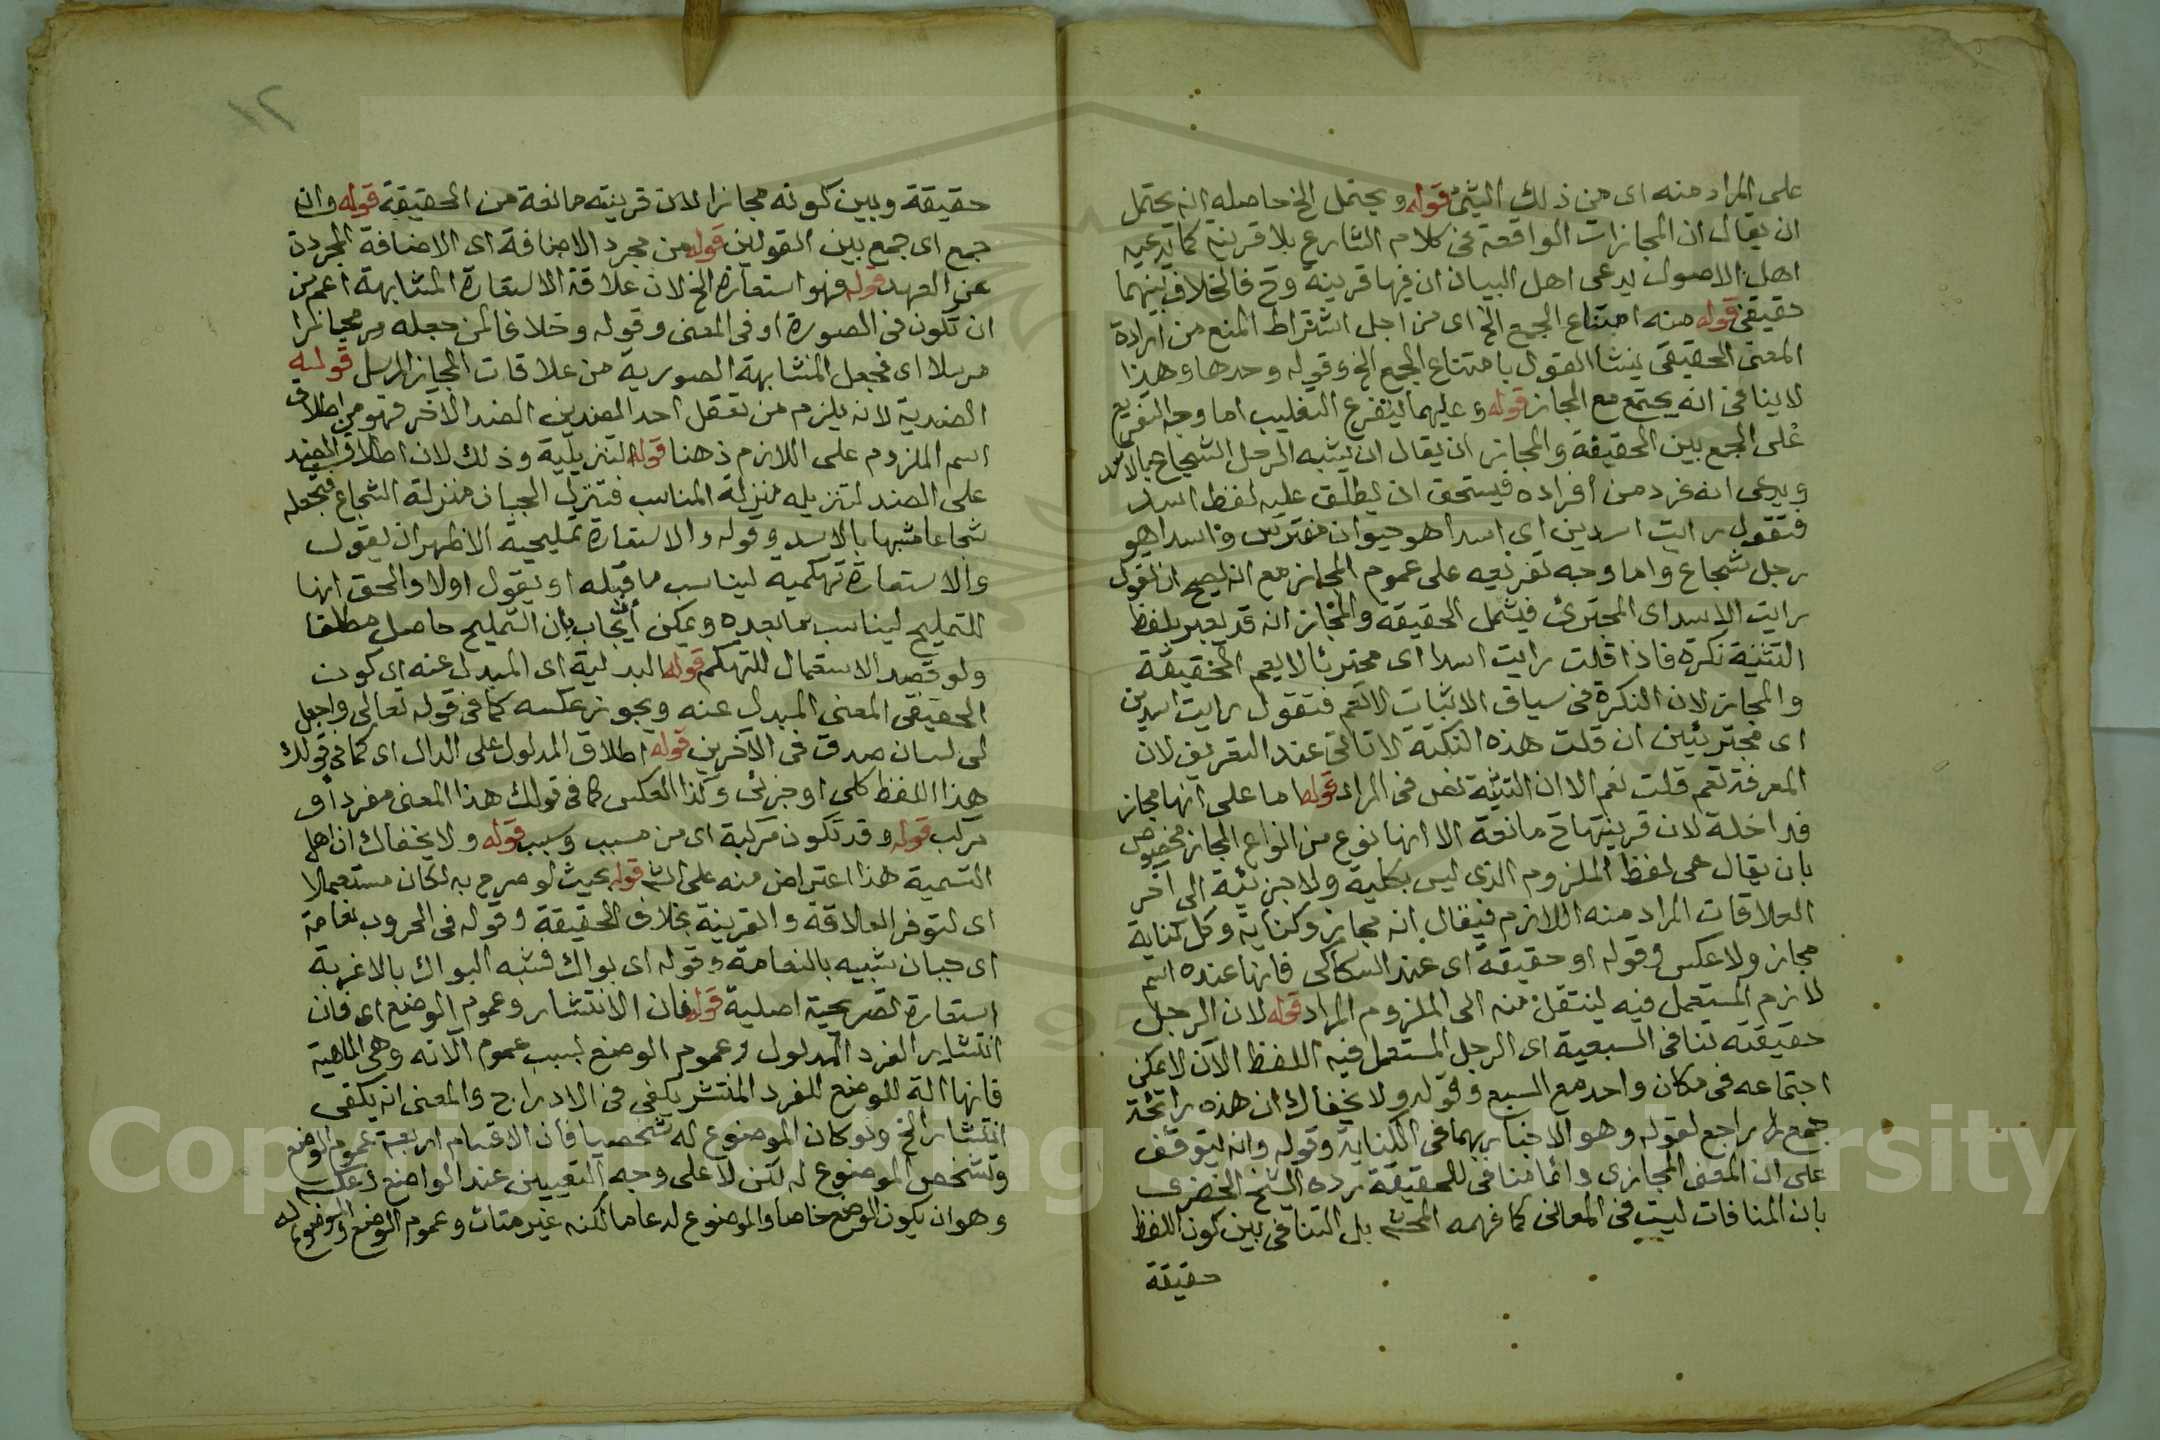 على المراد منه اى من ذلك الشئ قوله ويحتمل الخ حاصله انه يحتمل
ان يقال ان المجازات الواقعة فى كلام الشارع بلا قرينة كما يدعيه
اهل الاصول يدعى اهل البيان ان فيها قرينة وح فالخلاف بينهما
حقيقى قوله منه امتناع الجمع الخ اى من اجل اشتراط المنع من ارادة
المعنى الحقيقى ينشا القول بامتناع الجمع الخ وقوله وحدها وهذا
لاينافى انه يجتمع مع المجاز قوله وعليهما يتفرع التغليب اما وجه التفريع
على الجمع بين الحقيقة والمجاز ان يقال ان يشبه الرجل الشجاع بالاسد
ويدعى انه فرد من افراده فيستحق ان يطلق عليه لفظ اسد
فتقول رايت اسدين اى اسدا هو حيوان مفترس واسدا هو
رجل شجاع واما وجه تفريعه على عموم المجاز مع انه يصح ان تقول
رايت الاسد اى المجترئ فيشمل الحقيقة والمجاز انه قد يعبر بلفظ
التثنية نكرة فاذا قلت رايت اسدا اى مجترئا لا يعم الحقيقة
والمجاز لان النكرة فى سياق الاثبات لا تعم فتقول رايت اسدين
اى مجترئين ان قلت هذه النكتة لا تاتى عند التعريف لان
المعرفة تعم قلت نعم الا ان التثنية نص فى المراد قوله اما على انها مجاز
فداخلة لان قرينتها ح مانعة الا انها نوع من انواع المجاز مخصوص
بان يقال هى لفظ الملزوم الذى ليس بكلية ولا جزئية الى اخر
العلاقات المراد منه اللازم فيقال انه مجاز وكناية وكل كناية
مجاز ولا عكس وقوله او حقيقة اى عند السكاكى فانها عنده اسم
لازم المستعمل فيه لينتقل منه الى الملزوم المراد قوله لان الرجل
حقيقته تنافى السبعية اى الرجل المستعمل فيه اللفظ الآن لا يمكن
اجتماعه فى مكان واحد مع السبع وقوله ولا يخفاك ان هذه رائحة
جمع راجع لقوله وهو الاخبار بهما فى الكناية وقوله وانه يتوقف
على ان المعنى المجازى دائما منافى للحقيقة رده الشيخ الخضرى
بان المنافات ليست فى المعانى كما فهمه المحشى بل التنافى بين كون اللفظ
حقيقة
١٢
حقيقة وبين كونه مجازا لان قرينته مانعة من الحقيقة قوله وان
جمع اى جمع بين القولين قوله من مجرد الاضافة اى الاضافة المجردة
عن العهد قوله فهو استعارة الخ لان علاقة الاستعارة المشابهة اعم من
ان تكون فى الصورة او فى المعنى وقوله وخلافا لمن جعله مجازا
مرسلا اى فجعل المشابهة الصورية من علاقات المجاز المرسل قوله
الضدية لانه يلزم من تعقل احد الضدين الضد الآخر فهو من اطلاق
اسم الملزوم على اللازم ذهنا قوله التنزيلية وذلك لان اطلاق الضد
على الضد لتنزيله منزلة المناسب فتنزل الجبان منزلة الشجاع فتجعله
شجاعا مشبها بالاسد وقوله والاستعارة تمليحية الاظهر ان يقول
والاستعارة تهكمية ليناسب ما قبله او يقول اولا والحق انها
للتمليح ليناسب ما بعده ويمكن أن يجاب بان التمليح حاصل مطلقا
ولو قصد الاستعمال للتهكم قوله البدلية اى المبدل عنه اى كون
الحقيقى المعنى المبدل عنه ويجوز عكسه كما فى قوله تعالى واجعل
لى لسان صدق فى الآخرين قوله اطلاق المدلول على الدال اى كما فى قولك
هذا اللفظ كلى او جزئى وكذا العكس كما فى قولك هذا المعنى مفرد او
مركب قوله وقد تكون مركبة اى من مسبب وسبب قوله ولا يخفاك ان اهل
التسمية هذا اعتراض منه على قوله بحيث لو صرح به لكان مستعملا
اى لتوفر العلاقة والقرينة بخلاف الحقيقة وقوله فى الحروب نعامة
اى جبان شبيه بالنعامة وقوله اى بواك فشبه البواك بالاغربة
استعارة تصريحية اصلية قوله فان الانتشار وعموم الوضع اى فان
انتشار الفرد المدلول وعموم الوضع بسبب عموم آلاته وهى الماهية
فانها الة للوضع للفرد المنتشر يكفى فى الادراج والمعنى انه يكفى
انتشار الخ ولو كان الموضوع له شخصيا فان الاقسام اربعة عموم الوضع
وتشخص الموضوع له لكن لا على وجه التعيين عند الواضع وعكسه
وهو ان يكون الوضع خاصا والموضوع له عاما لكنه غير متات وعموم الوضع والموضوع له
Copyright © King Saud University